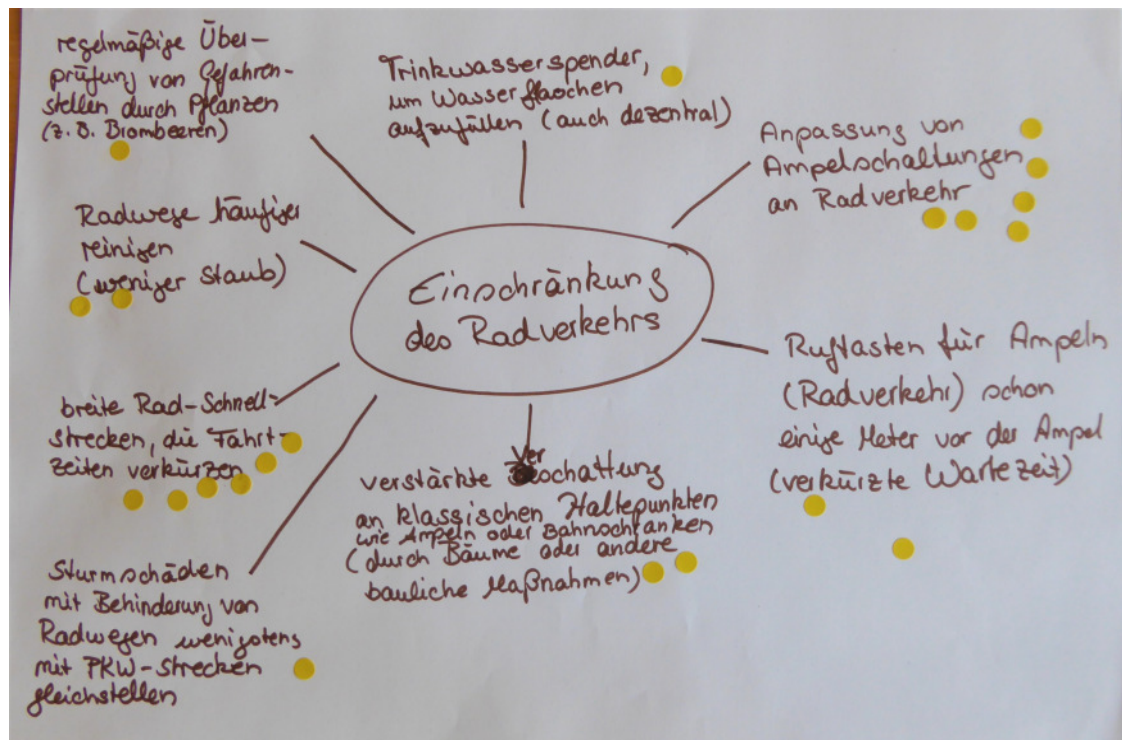 regelmäßige Über-
prüfung von Gefahren-
stellen durch Pflanzen
(z.B. Brombeeren)
Trinkwasserspender,
um Wasserflaschen
aufzufüllen (auch dezentral)
Anpassung von
Ampelschaltungen
an Radverkehr
Radwege häufiger
reinigen
(weniger Staub)
Einschränkung
des Radverkehrs
Ruftasten für Ampeln
(Radverkehr) schon
einige Meter vor der Ampel
(verkürzte Wartezeit)
breite Rad-Schnell-
strecken, die Fahrt-
zeiten verkürzen
verstärkte Verschattung
an klassischen Haltepunkten
wie Ampeln oder Bahnschranken
(durch Bäume oder andere
bauliche Maßnahmen)
Sturmschäden
mit Behinderung von
Radwegen wenigstens
mit PKW-Strecken
gleichstellen